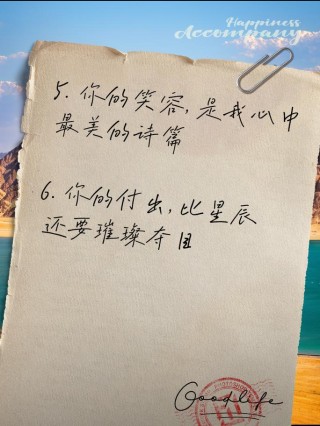 Happiness
Accompany
5. 你的笑容，是我心中
最美的诗篇
6. 你的付出，比星辰
还要璀璨夺目
Goodlife